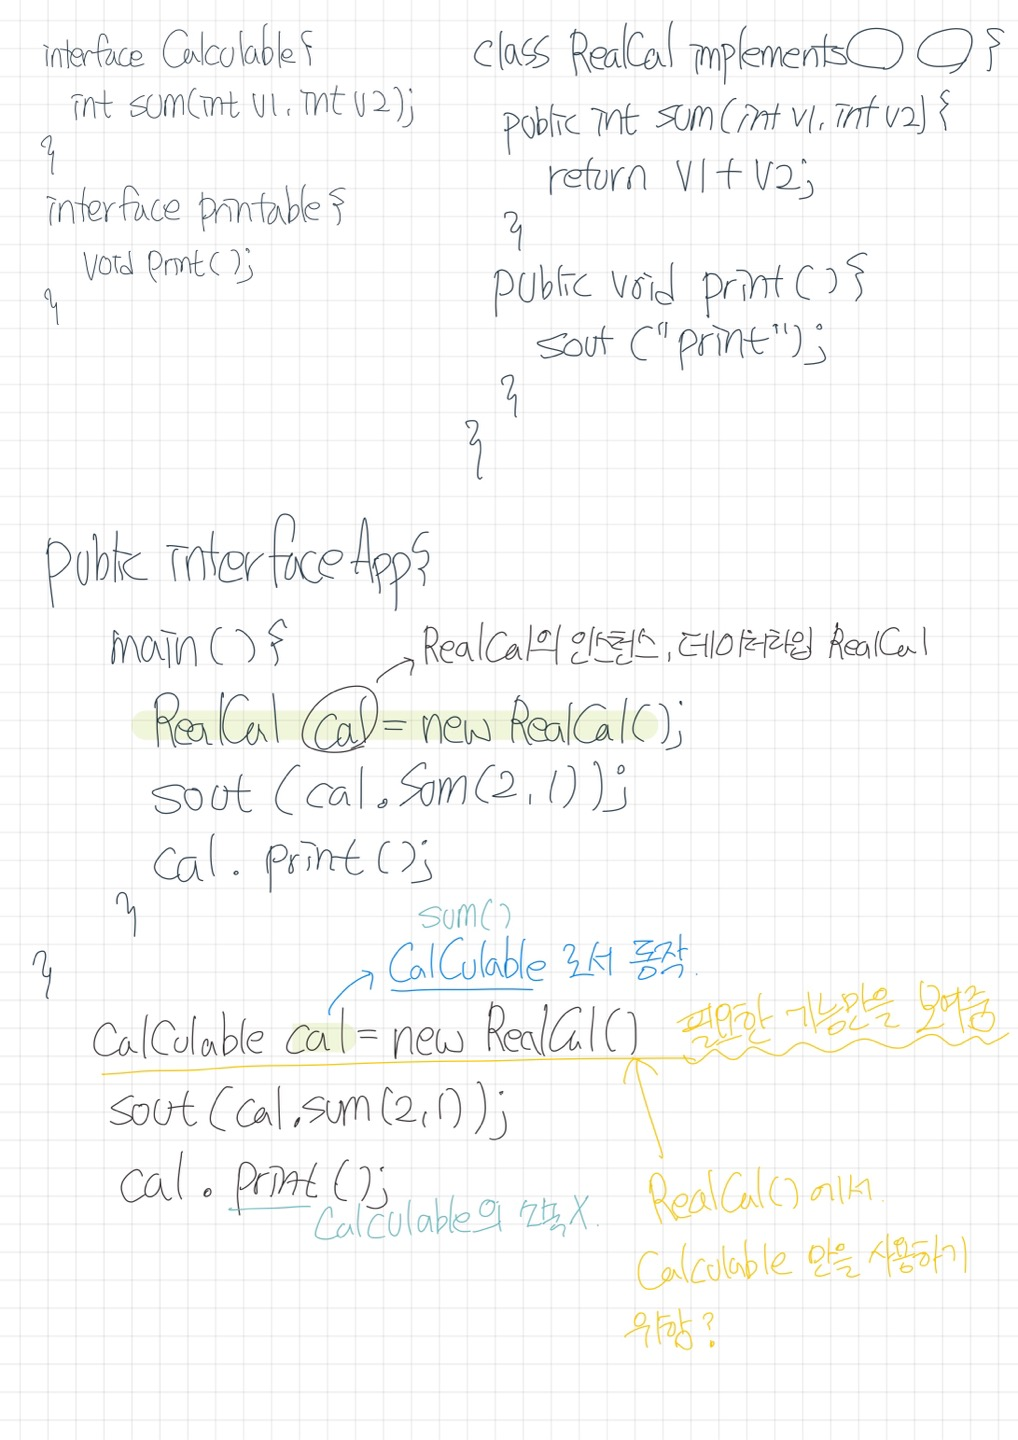 interface Calculable{
int sum(int v1, int v2);
}
interface printable{
void print();
}
class RealCal implements {
public int sum(int v1, int v2){
return v1+v2;
}
public void print(){
sout ("print");
}
}
public interface App{
main(){
RealCal의 인스턴스, 데이터타입 RealCal
RealCal cal = new RealCal();
sout (cal.sum(2,1));
cal. print();
}
}
sum()
Calculable 로서 동작.
Calculable cal = new RealCal()
필요한 기능만을 보여줌
sout(cal.sum(2,1));
cal. print();
Calculable의 소속X.
RealCal()에서
Calculable 만을 사용하기
위함?